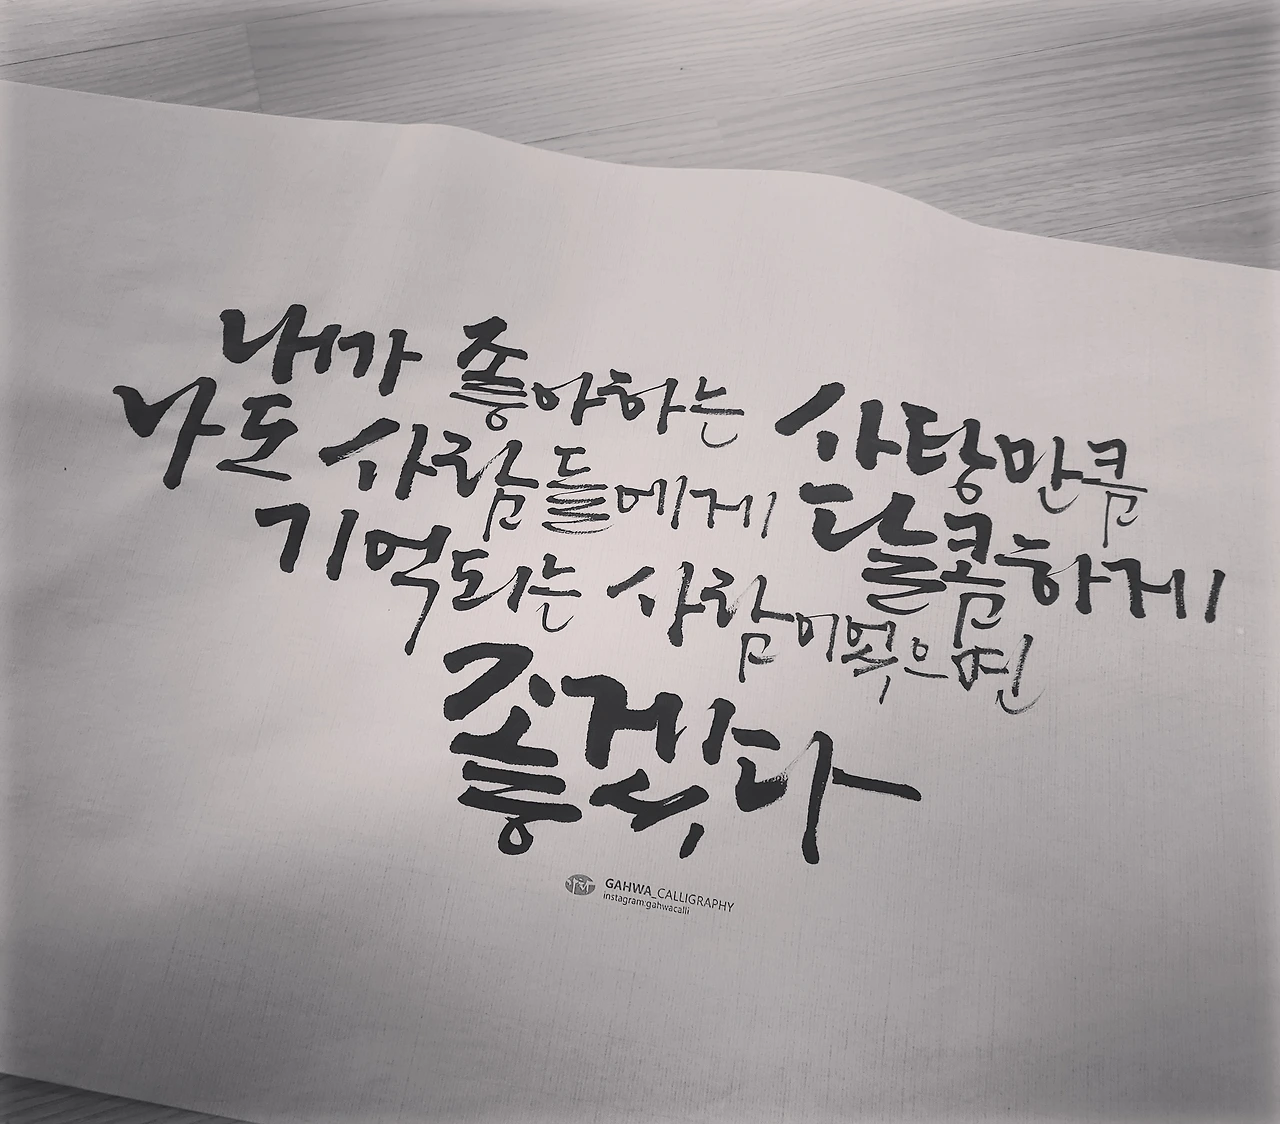 내가 좋아하는 사탕만큼
나도 사람들에게 달콤하게
기억되는 사람이였으면
좋겠다
GAHWA_CALLIGRAPHY
instagram:gahwacalli